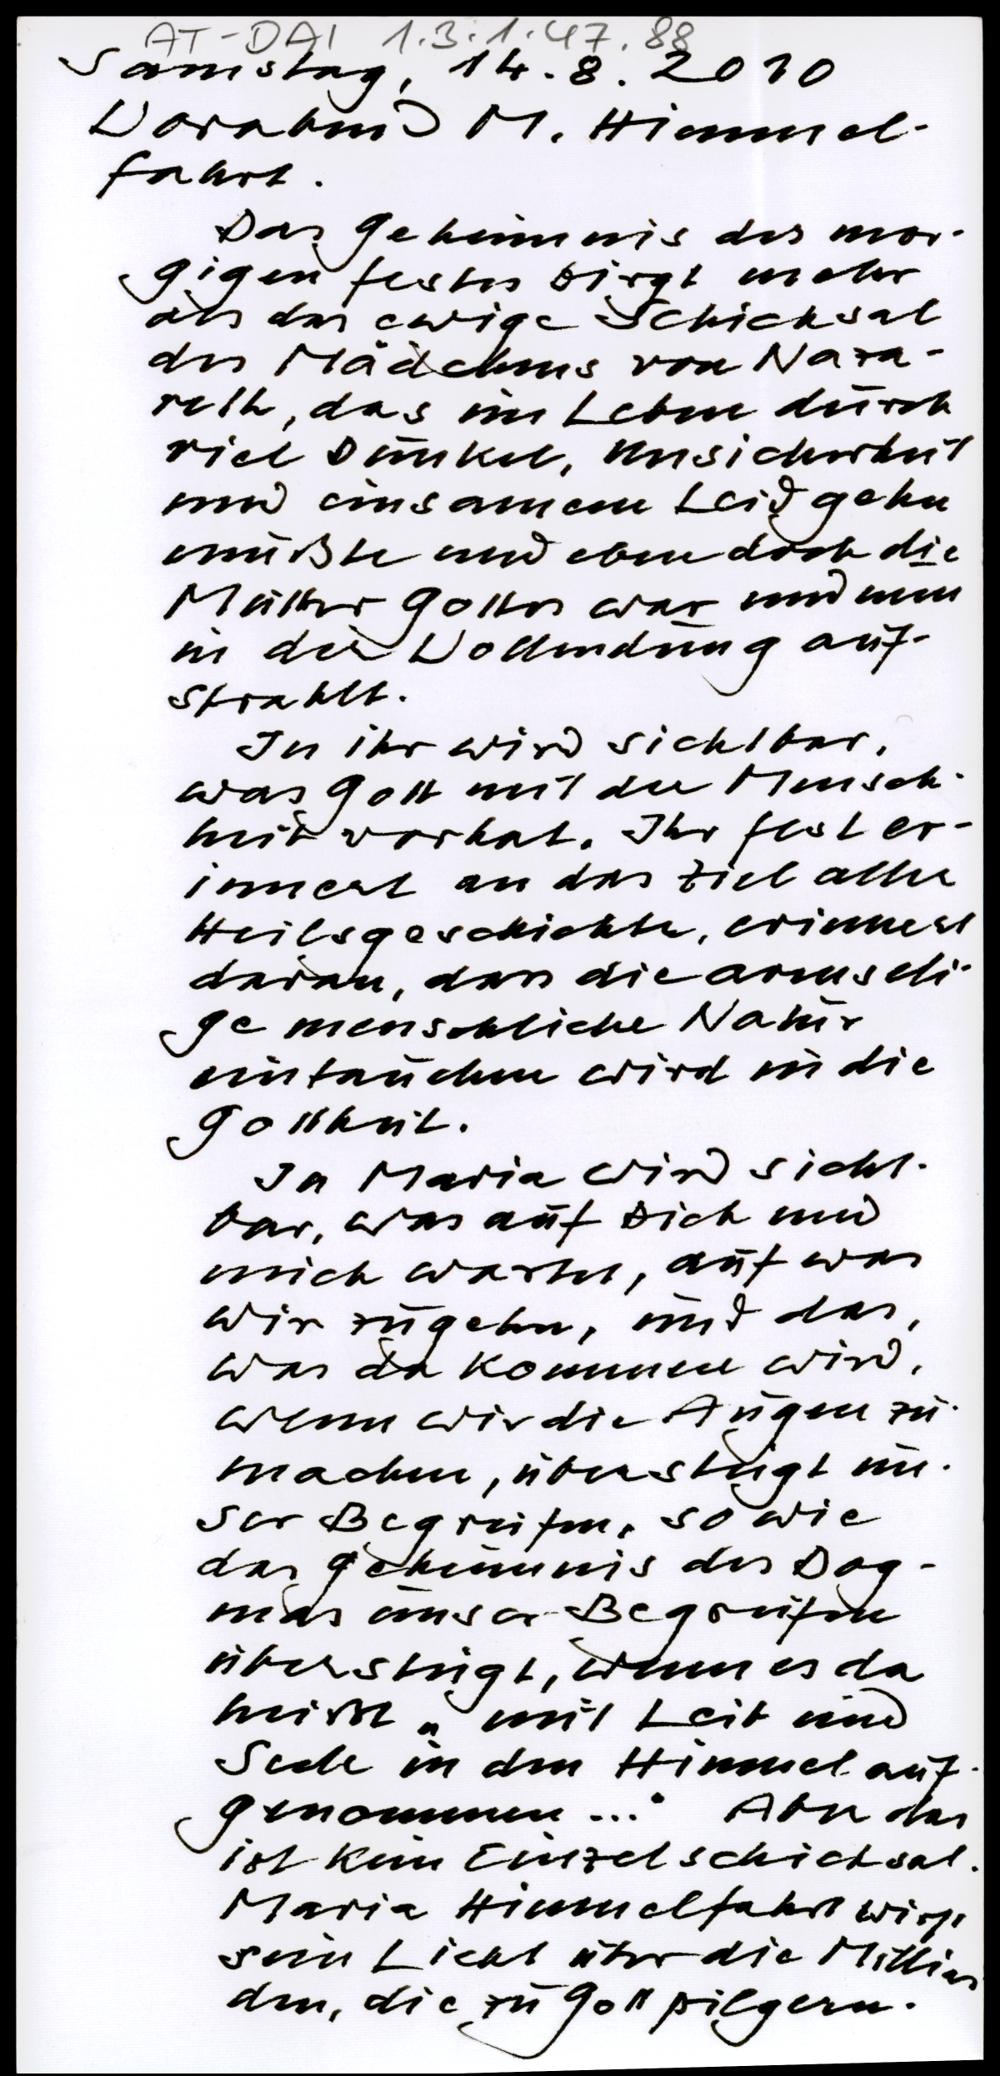 AT-DAI 1.3.1.47.88
Samstag, 14.8.2010
Vorabend M. Himmel-
fahrt.
Das Geheimnis des mor-
gigen Festes birgt mehr
als das ewige Schicksal
des Mädchens von Naza-
reth, das im Leben durch
viel Dunkel, Unsicherheit
und einsamem Leid gehn
mußte und eben doch die
Mutter Gottes war und nun
in die Vollendung auf-
strahlt.
In ihr wird sichtbar,
was Gott mit der Mensch-
heit vorhat. Ihr Fest er-
innert an das Ziel aller
Heilsgeschichte, erinnert
daran, dass die armseli-
ge menschliche Natur
eintauchen wird in die
Gottheit.
In Maria wird sicht-
bar, was auf Dich und
mich wartet, auf was
wir zugehn, und das,
was da kommen wird,
wenn wir die Augen zu-
machen, übersteigt un-
ser Begreifen, so wie
das Geheimnis des Dog-
mas unser Begreifen
übersteigt, wenn es da
heißt „mit Leib und
Seele in den Himmel auf-
genommen ..." Aber das
ist kein Einzelschicksal.
Maria Himmelfahrt wirft
sein Licht über die Milliar
den, die zu Gott pilgern.